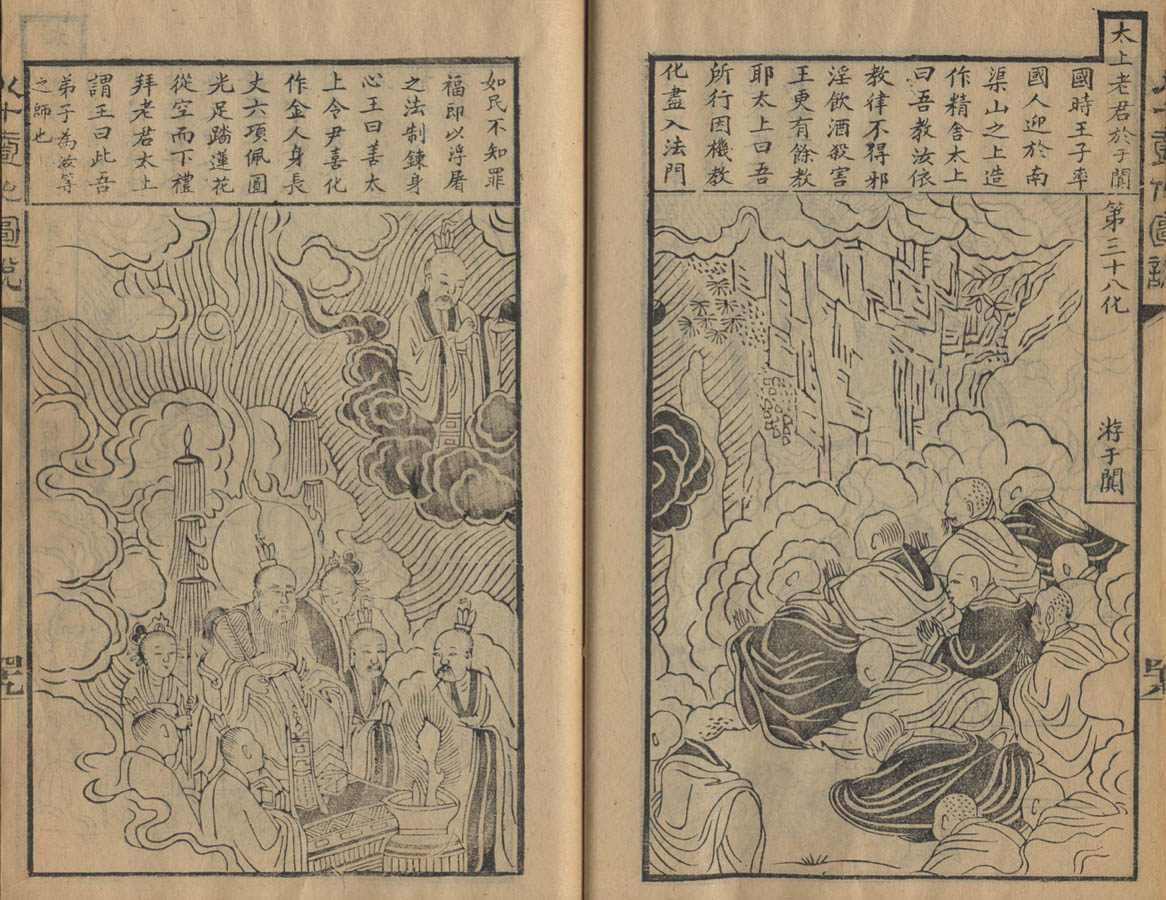 太上老君於于闐
國時王子率
國人迎於南
渠山之上造
作精舍太上
曰吾教汝依
教律不得邪
淫飲酒殺害
王更有餘教
耶太上曰吾
所行因機教
化盡入法門
第三十八化
游于闐
如民不知罪
福即以浮屠
之法制鍊身
心王曰善太
上令尹喜化
作金人身長
丈六項佩圓
光足踏蓮花
從空而下禮
拜老君太上
謂王曰此吾
弟子為汝等
之師也
八十壹化圖說